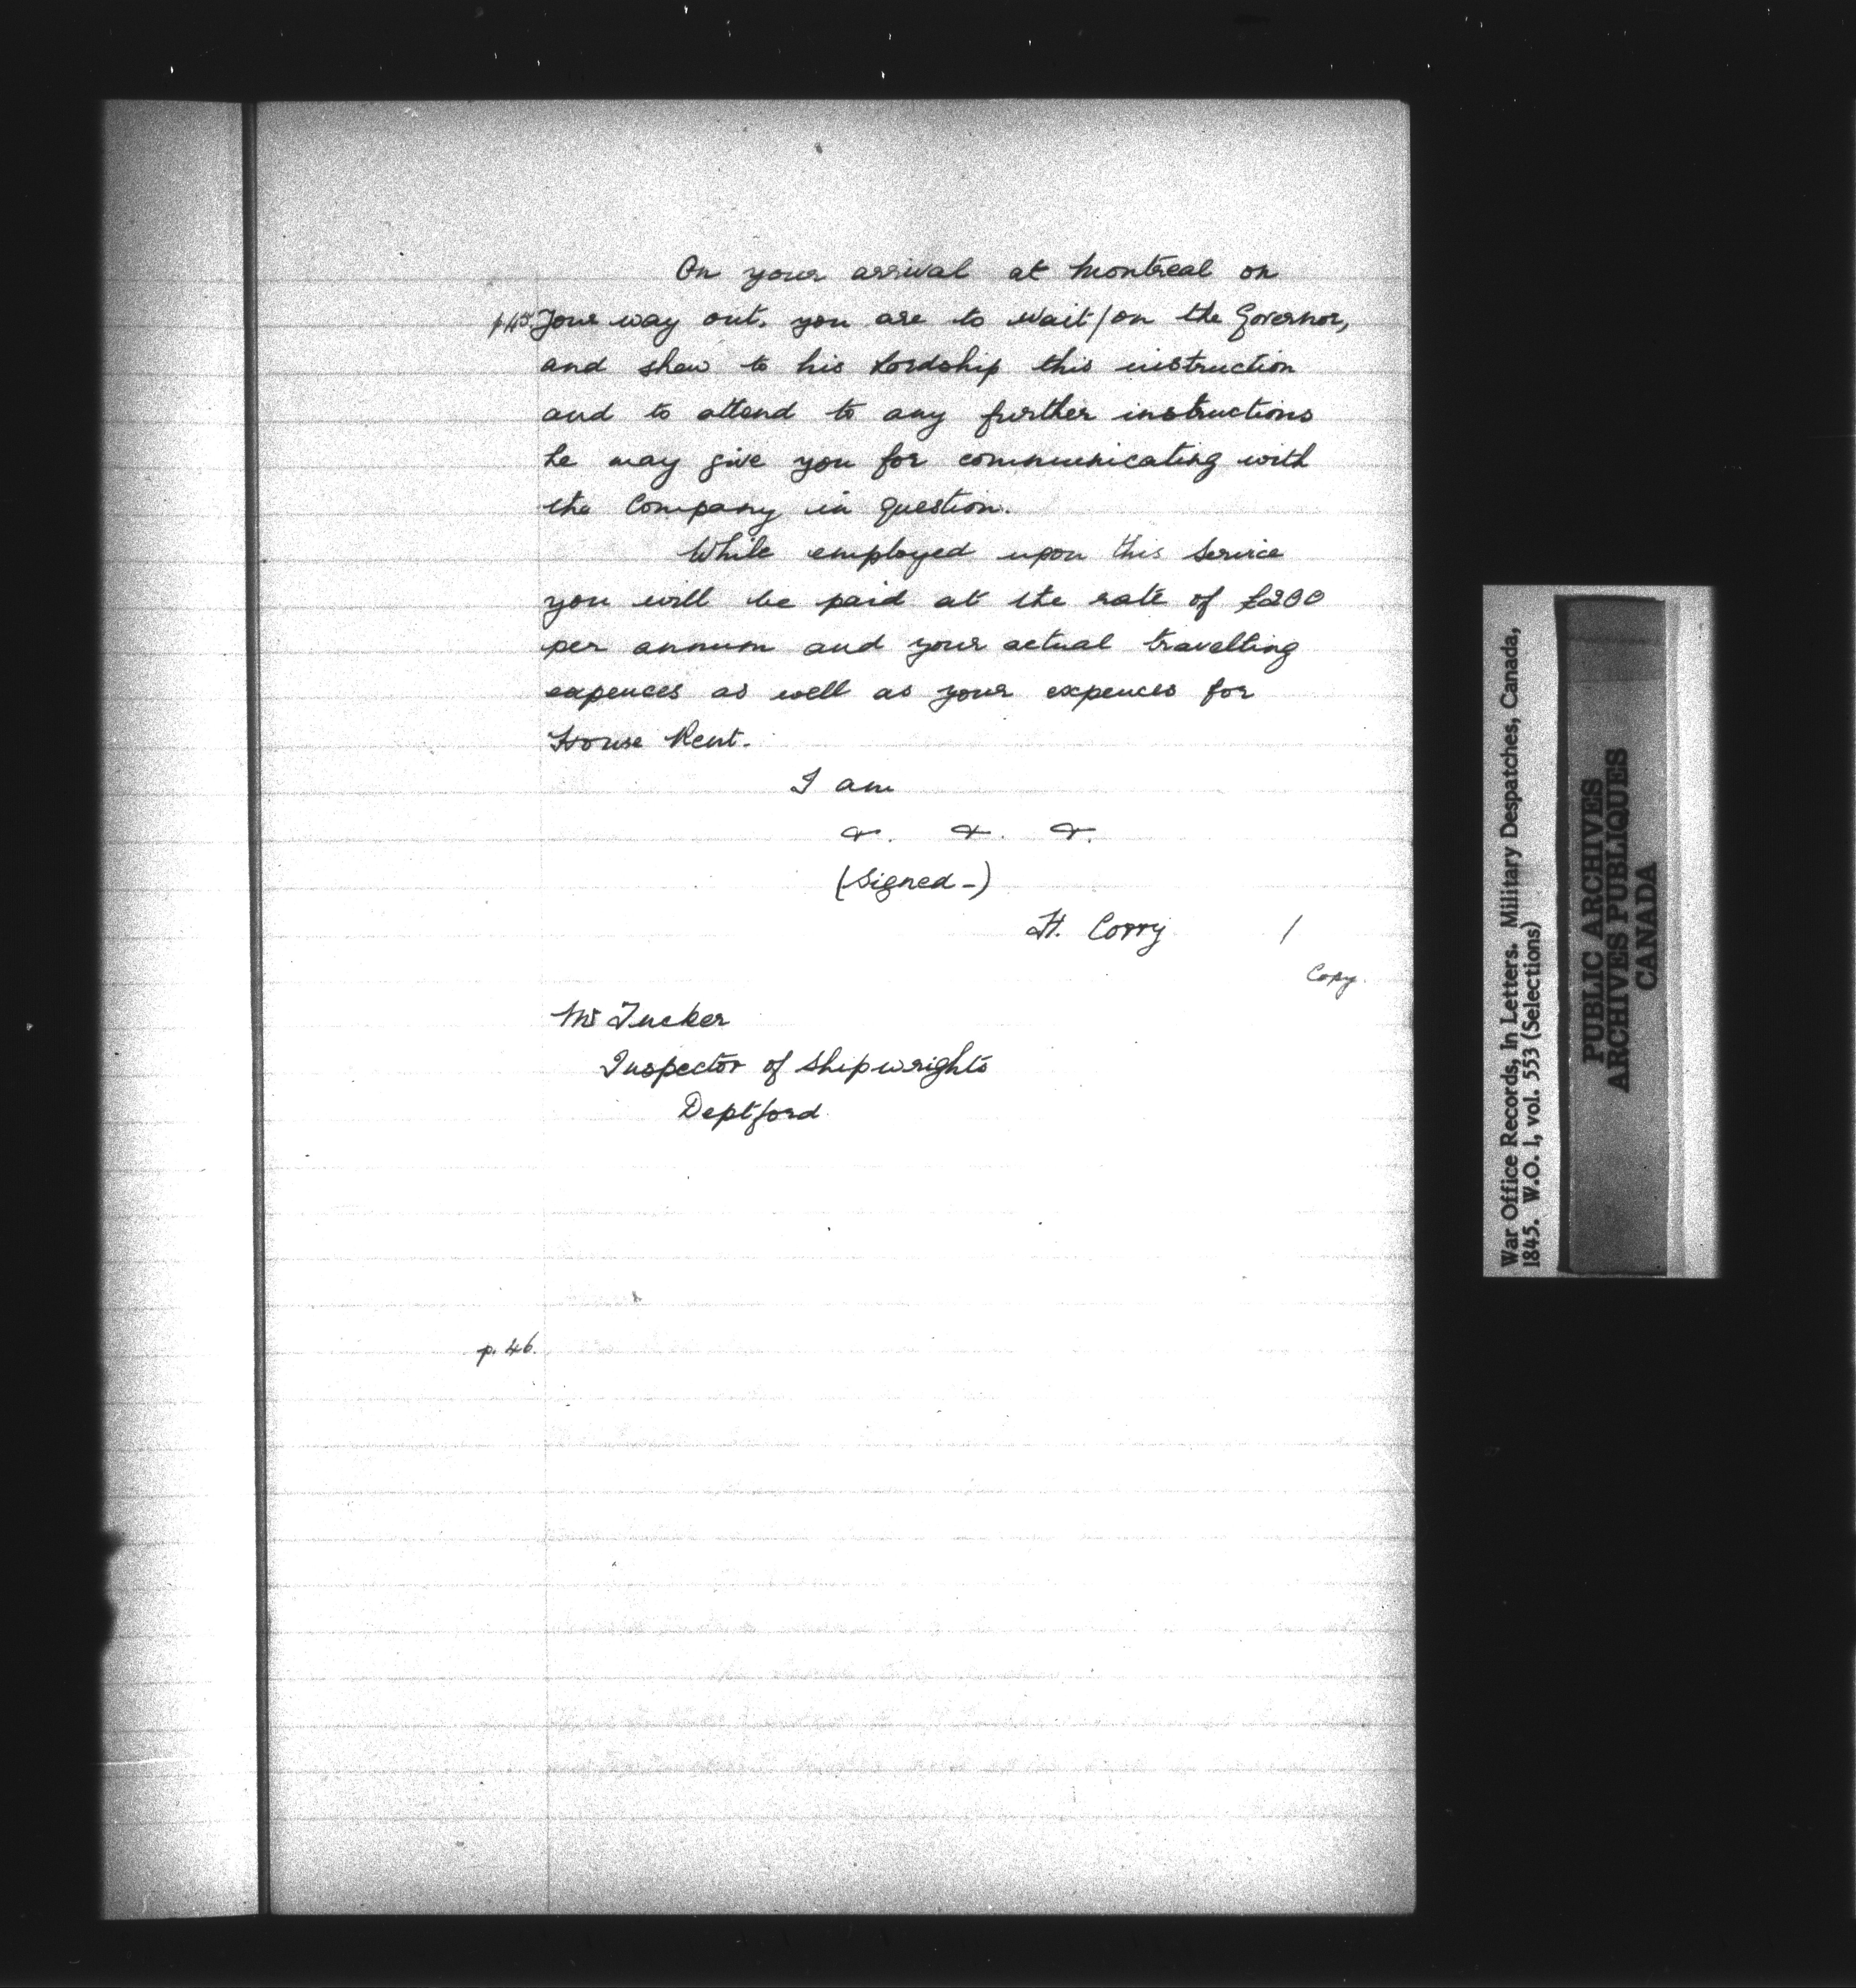 On your arrival at Montreal on
p.45. your way out, you are to wait/on the Governor,
and shew to his Lordship this instruction
and to attend to any further instructions
he may give you for communicating with
the Company in question.
While employed upon this service
you will be paid at the rate of £200
per annum and your actual travelling
expences as well as your expences for
House Rent.
I am
&. &. &.
(Signed-)
H. Corry /
Copy.
Mr Tucker
Inspector of Shipwrights
Deptford
p. 46.
War Office Records, In Letters. Military Despatches, Canada,
1845. W.O. 1, vol. 553 (Selections)
PUBLIC ARCHIVES
ARCHIVES PUBLIQUES
CANADA